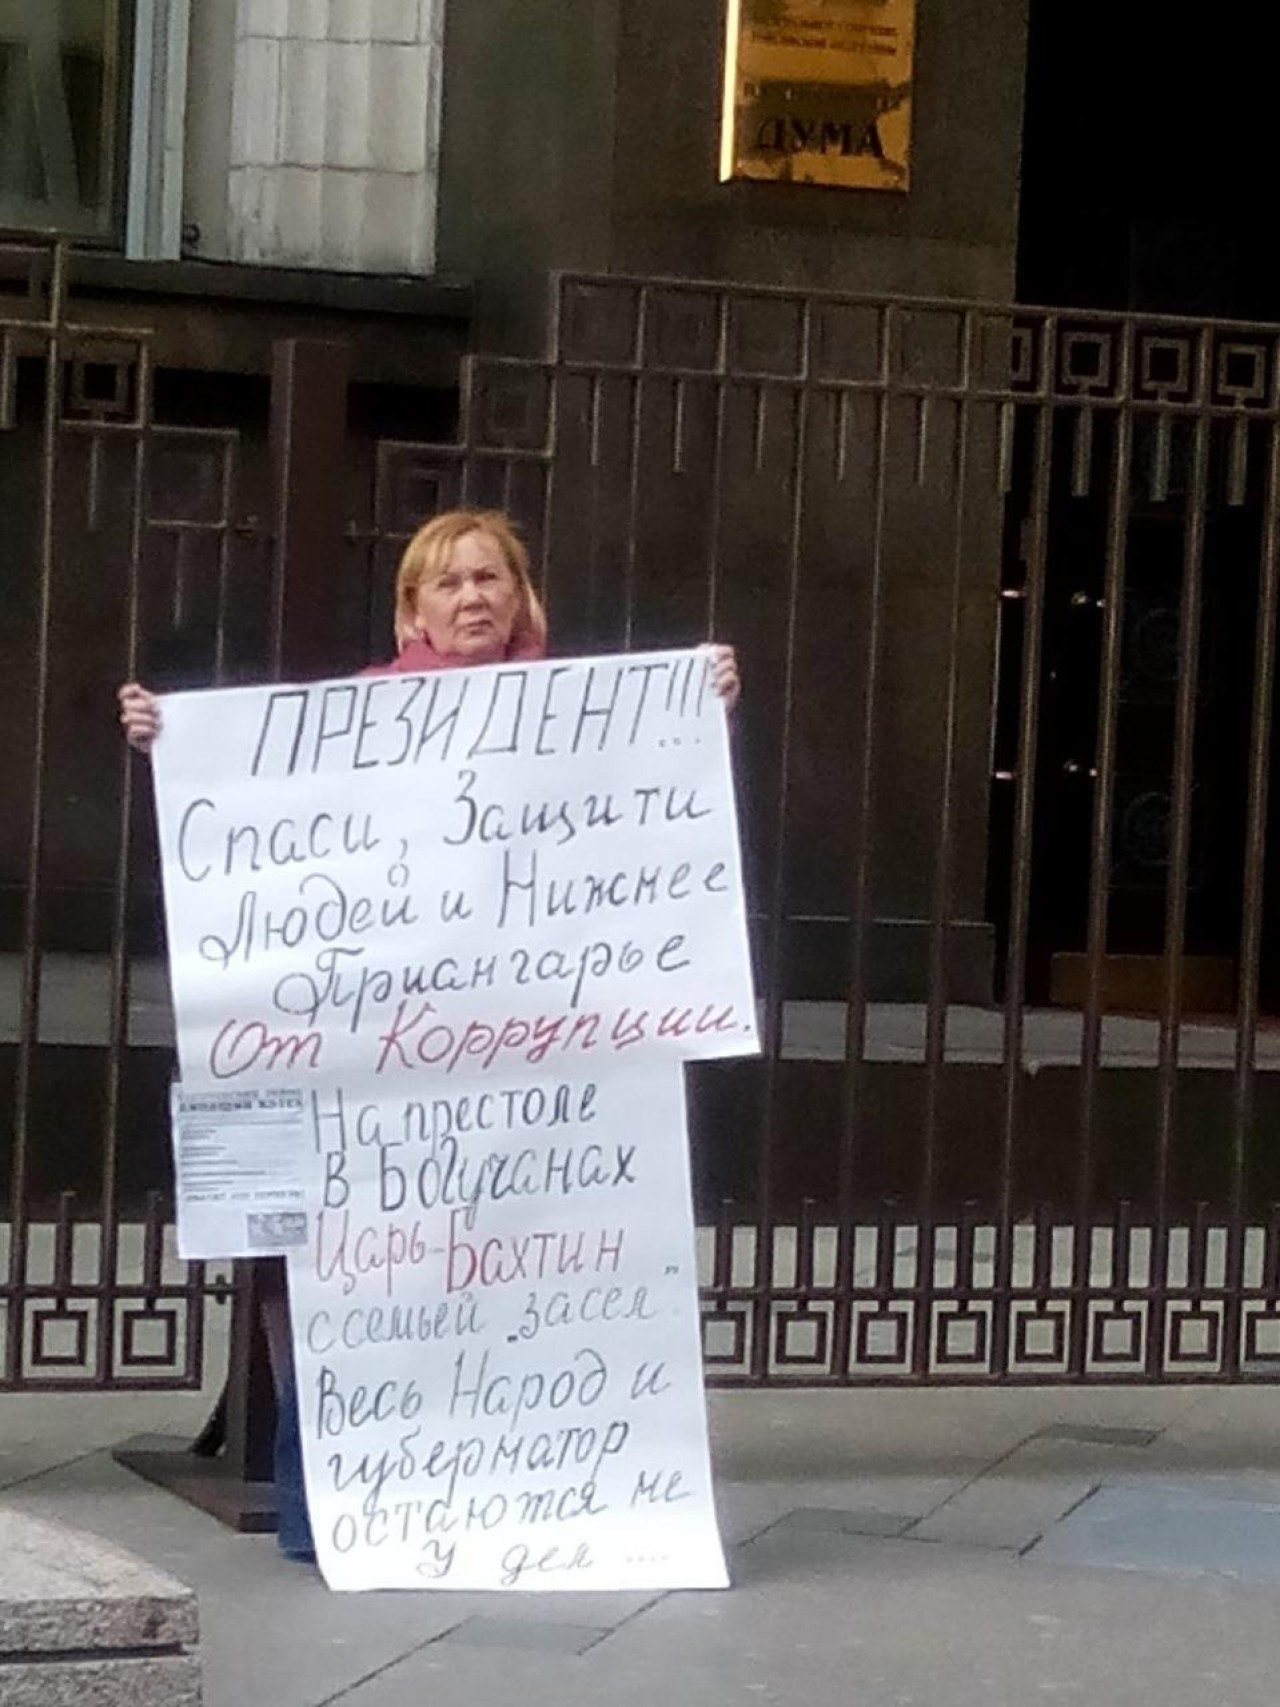 ДУМА
ПРЕЗИДЕНТ!!!
Спаси, Защити
Людей и Нижнее
Приангарье
От Коррупции.
На престоле
в Богучанах
Царь-Бахтин
с семьей „засел"
Весь Народ и
губернатор
остаются не
у дел ....